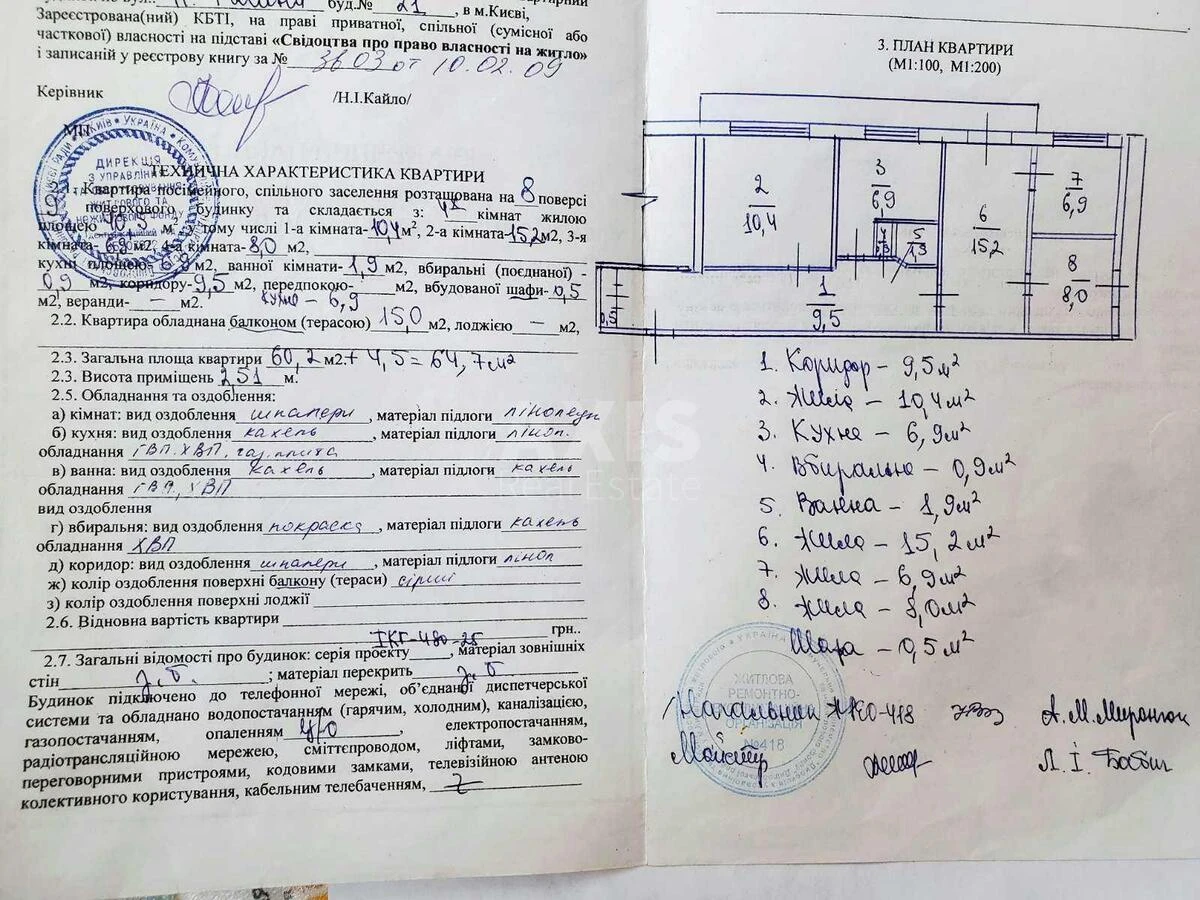 буд.№ 21, в м.Києві,
Зареєстрована(ний) КБТІ, на праві приватної, спільної (сумісної або
часткової) власності на підставі «Свідоцтва про право власності на житло»
і записаній у реєстрову книгу за № 3603 от 10.02.09
Керівник /Н.І.Кайло/
МП
ТЕХНІЧНА ХАРАКТЕРИСТИКА КВАРТИРИ
Квартира посімейного, спільного заселення розташована на 8 поверсі
поверхового будинку та складається з: кімнат жилою
площею м², у тому числі 1-а кімната-10,4м², 2-а кімната-15,2м2, 3-я
кімната- 6,9 м2, 4-а кімната-8,0 м2,
кухні площею- м2, ванної кімнати-1,9м2, вбиральні (поєднаної) -
0,9 м2, коридору-9,5 м2, передпокою- м2, вбудованої шафи-0,5
м2, веранди- — м2. кухно – 6,9
2.2. Квартира обладнана балконом (терасою) 15,0 м2, лоджією — м2,
2.3. Загальна площа квартири 60,2 м2.+ 4,5 = 64,7м²
2.3. Висота приміщень 2,51 м.
2.5. Обладнання та оздоблення:
а) кімнат: вид оздоблення шпалери, матеріал підлоги лінолеум
б) кухня: вид оздоблення кахель, матеріал підлоги ліноп.
обладнання ГВП.ХВП, газ.плита
в) ванна: вид оздоблення кахель, матеріал підлоги кахель
обладнання ГВП, ХВП
вид оздоблення
г) вбиральня: вид оздоблення покраска, матеріал підлоги кахель
обладнання ХВП
д) коридор: вид оздоблення шпалери, матеріал підлоги ліноп
ж) колір оздоблення поверхні балкону (тераси) сірий
з) колір оздоблення поверхні лоджії
2.6. Відновна вартість квартири
грн..
ІКГ-480-25
2.7. Загальні відомості про будинок: серія проекту, матеріал зовнішніх
стін з.б. ; матеріал перекрить з.б
Будинок підключено до телефонної мережі, об'єднаної диспетчерської
системи та обладнано водопостачання (гарячим, холодним), каналізацією,
газопостачанням, опаленням ц/о, електропостачанням,
радіотрансляційною мережею, сміттєпроводом, ліфтами, замково-
переговорними пристроями, кодовими замками, телевізійною антеною
колективного користування, кабельним телебаченням,
3. ПЛАН КВАРТИРИ
(М1:100, М1:200)
2
10,4
3
6,9
4
5
1,9
6
15,2
7
6,9
8
8,0
1
9,5
0,5
1. Коридор – 9,5м²
2. Жила – 10,4м²
3. Кухна – 6,9м²
4. Вбиральна – 0,9м²
5. Ванна – 1,9м²
6. Жила – 15,2м²
7. Жила – 6,9м²
8. Жила – 8,0м²
Шафа – 0,5м²
Начальник ЖЕО-418 А.М.Миронюк
Майстер Л.І. Бабич
ЖИТЛОВА
РЕМОНТНО-
ОРГАНІЗАЦІЯ
№418
ДИРЕКЦІЯ
З УПРАВЛІННЯ
AXIS
Real Estate